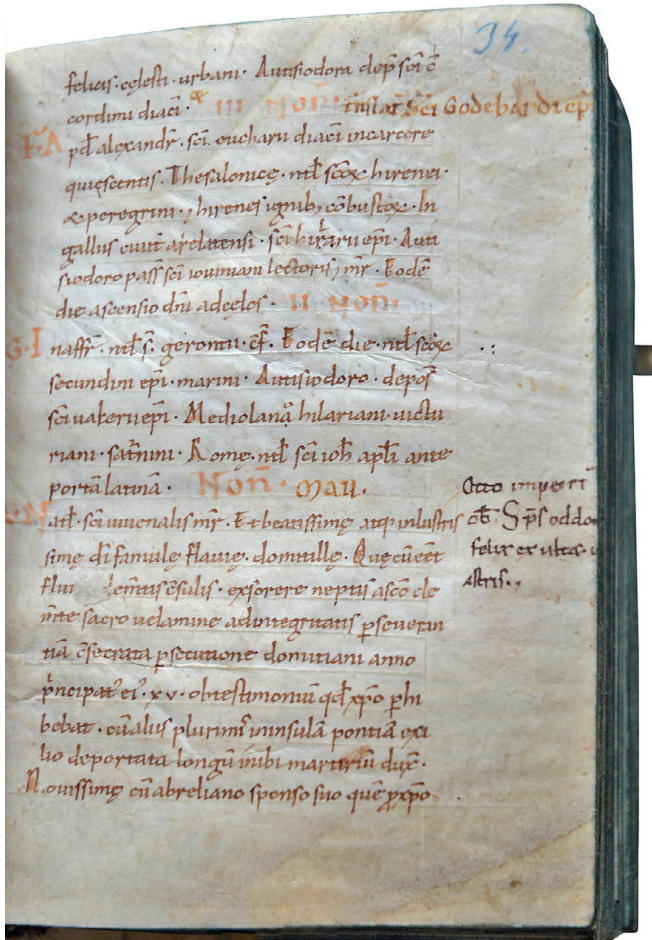 34.
felicis · cęlesti · urbani · Autisiodora dep̄ sc̄i c̄
cordini diac̄i · III Non̄ · Sc̄i Godehardi ep̄i
F·A pd̄ alexandr̄ · sc̄i eucharii diac̄i incarcere
quięscentis · Thesalonicę · ntł scōꝝ hirenei ·
& peregrini · ⁊ hirenes ignib; cōbustoꝝ · In
gallus ciuit arelatensi · sc̄i hilarii ep̄i · Auti
siodoro pass̄ sc̄i iouiniani lectoris ⁊ mr̄ · Eodē
die ascensio dn̄i adcęlos · II Non̄ ·
G·I naffr̄ · ntł s̄ · gerontii · cf̄ · Eodē die · ntł scōꝝ
secundini ep̄i · marini · Autisiodoro · depos̄
sc̄i ualerii ep̄i · Mediolanō hilariani · uictu
riani · sat̄nini · Romę · ntł sc̄i ioh̄ apłi ante
portā latinā · Non̄ · Maii ·
N atł · sc̄i iuuenalis mr̄ · Et beatissimę atq; inlustris
simę dī famulę flauię · domitillę · Quę cū eēt
flui lem̄tis c̄sulis · exsorere neptis asc̄o cle
m̄te sacro uelamine adintegritatis pseueran
tiā c̄secrata psecutione domitiani anno
p̄ncipat' ei' · xv · obtestimoniū qd̄ xp̄o phi
bebat · cū aliis plurimis ininsulā pontiā exi
lio deportata longū inibi martiriū dux̄ ·
Nouissimę cū abreliano sponso suo quē p xp̄o
Otto imperr̄
ob̄ Sp̄s oddo
felix ex ultra
astris ·